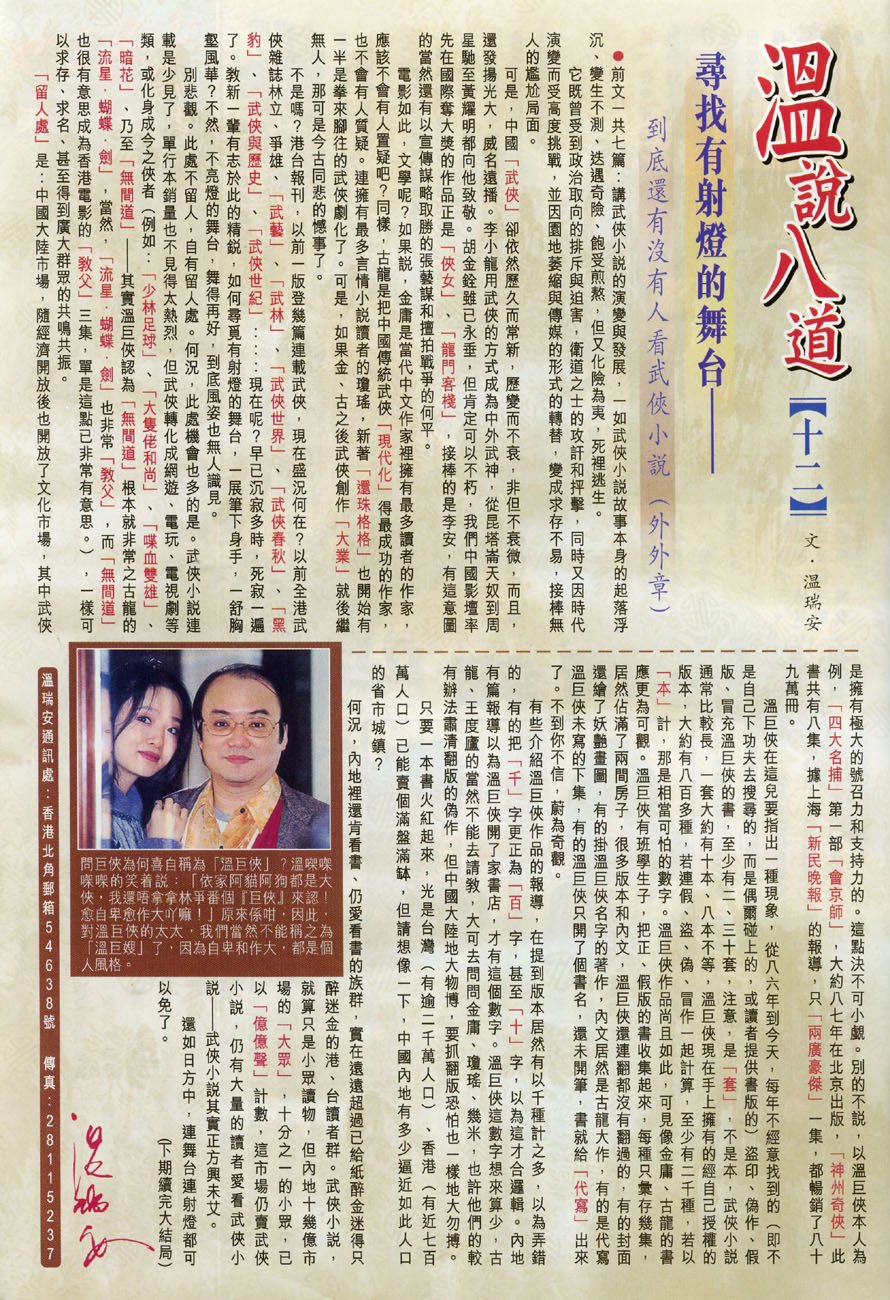 溫說八道【十二】 文．溫瑞安
尋找有射燈的舞台——
到底還有沒有人看武俠小說（外外章）
●前文一共七篇：講武俠小說的演變與發展，一如武俠小說故事本身的起落浮
沉、變生不測、迭遇奇險、飽受煎熬，但又化險為夷，死裡逃生。
它既曾受到政治取向的排斥與迫害，衛道之士的攻訐和抨擊，同時又因時代
演變而受高度挑戰，並因園地萎縮與傳媒的形式的轉替，變成求存不易，接棒無
人的尷尬局面。
可是，中國「武俠」卻依然歷久而常新，歷變而不衰，非但不衰微，而且，
還發揚光大，威名遠播。李小龍用武俠的方式成為中外武神，從昆塔崙天奴到周
星馳至黃耀明都向他致敬。胡金銓雖已永垂，但肯定可以不朽，我們中國影壇率
先在國際奪大獎的作品正是「俠女」、「龍門客棧」，接棒的是李安，有這意圖
的當然還有以宣傳謀略取勝的張藝謀和擅拍戰爭的何平。
電影如此，文學呢？如果說，金庸是當代中文作家裡擁有最多讀者的作家，
應該不會有人置疑吧？同樣，古龍是把中國傳統武俠「現代化」得最成功的作家，
也不會有人質疑。連擁有最多言情小說讀者的瓊瑤，新著「還珠格格」也開始有
一半是拳來腳往的武俠劇化了。可是，如果金、古之後武俠創作「大業」就後繼
無人，那可是今古同悲的憾事了。
不是嗎？港台報刊，以前一版登幾篇連載武俠，現在盛況何在？以前全港武
俠雜誌林立、爭雄，「武藝」、「武林」、「武俠世界」、「武俠春秋」、「黑
豹」、「武俠與歷史」、「武俠世紀」：：：現在呢？早已沉寂多時，死寂一遍
了。教新一輩有志於此的精銳，如何尋覓有射燈的舞台，一展筆下身手，一舒胸
壑風華？不然，不亮燈的舞台，舞得再好，到底風姿也無人識見。
別悲觀。此處不留人，自有留人處。何況，此處機會也多的是。武俠小說連
載是少見了，單行本銷量也不見得太熱烈，但武俠轉化成網遊、電玩、電視劇等
類，或化身成今之俠者（例如：「少林足球」、「大隻佬和尚」、「喋血雙雄」、
「暗花」、乃至「無間道」——其實溫巨俠認為「無間道」根本就非常之古龍的
「流星．蝴蝶．劍」，當然，「流星．蝴蝶．劍」也非常「教父」，而「無間道」
也很有意思成為香港電影的「教父」三集，單是這點已非常有意思。），一樣可
以求存、求名、甚至得到廣大群眾的共鳴共振。
「留人處」是：中國大陸市場，隨經濟開放後也開放了文化市場，其中武俠
是擁有極大的號召力和支持力的。這點決不可小覷。別的不說，以溫巨俠本人為
例，「四大名捕」第一部「會京師」，大約八七年在北京出版，「神州奇俠」此
書共有八集，據上海「新民晚報」的報導，只「兩廣豪傑」一集，都暢銷了八十
九萬冊。
溫巨俠在這兒要指出一種現象，從八六年到今天，每年不經意找到的（即不
是自己下功夫去搜尋的，而是偶爾碰上的，或讀者提供書版的）盜印、偽作、假
版、冒充溫巨俠的書，至少有二、三十套，注意，是「套」，不是本，武俠小說
通常比較長，一套大約有十本、八本不等，溫巨俠現在手上擁有的經自己授權的
版本，大約有八百多種，若連假、盜、偽、冒作一起計算，至少有二千種，若以
「本」計，那是相當可怕的數字。溫巨俠作品尚且如此，可見像金庸、古龍的書
應更為可觀。溫巨俠有班學生子，把正、假版的書收集起來，每種只彙存幾集，
居然佔滿了兩間房子，很多版本和內文，溫巨俠還連翻都沒有翻過的，有的封面
還繪了妖艷畫圖，有的掛溫巨俠名字的著作，內文居然是古龍大作，有的是代寫
溫巨俠未寫的下集，有的溫巨俠只開了個書名，還未開筆，書就給「代寫」出來
了。不到你不信，蔚為奇觀。
有些介紹溫巨俠作品的報導，在提到版本居然有以千種計之多，以為弄錯
的，有的把「千」字更正為「百」字，甚至「十」字，以為這才合邏輯。內地
有篇報導以為溫巨俠開了家書店，才有這個數字。溫巨俠這數字想來算少，古
龍、王度廬的當然不能去請教，大可去問問金庸、瓊瑤、幾米，也許他們的較
有辦法肅清翻版的偽作，但中國大陸地大物博，要抓翻版恐怕也一樣地大勿搏。
只要一本書火紅起來，光是台灣（有逾二千萬人口）、香港（有近七百
萬人口）已能賣個滿盤滿缽，但請想像一下，中國內地有多少逼近如此人口
的省市城鎮？
何況，內地裡還肯看書、仍愛看書的族群，實在遠遠超過已給紙醉金迷得只
醉迷金的港、台讀者群。武俠小說，
就算只是小眾讀物，但內地十幾億市
場的「大眾」，十分之一的小眾，已
以「億億聲」計數，這市場仍賣武俠
小說，仍有大量的讀者愛看武俠小
說——武俠小說其實正方興未艾。
還如日方中，連舞台連射燈都可
以免了。
（下期續完大結局）
問巨俠為何喜自稱為「溫巨俠」？溫㗎㗎
㗎㗎的笑着說：「依家阿貓阿狗都是大
俠，我還唔拿拿林爭番個『巨俠』來認！
愈自卑愈作大吖嘛！」原來係咁，因此，
對溫巨俠的太太，我們當然不能稱之為
「溫巨嫂」了，因為自卑和作大，都是個
人風格。
溫瑞安通訊處：香港北角郵箱54638號 傳真：28115237
溫瑞安